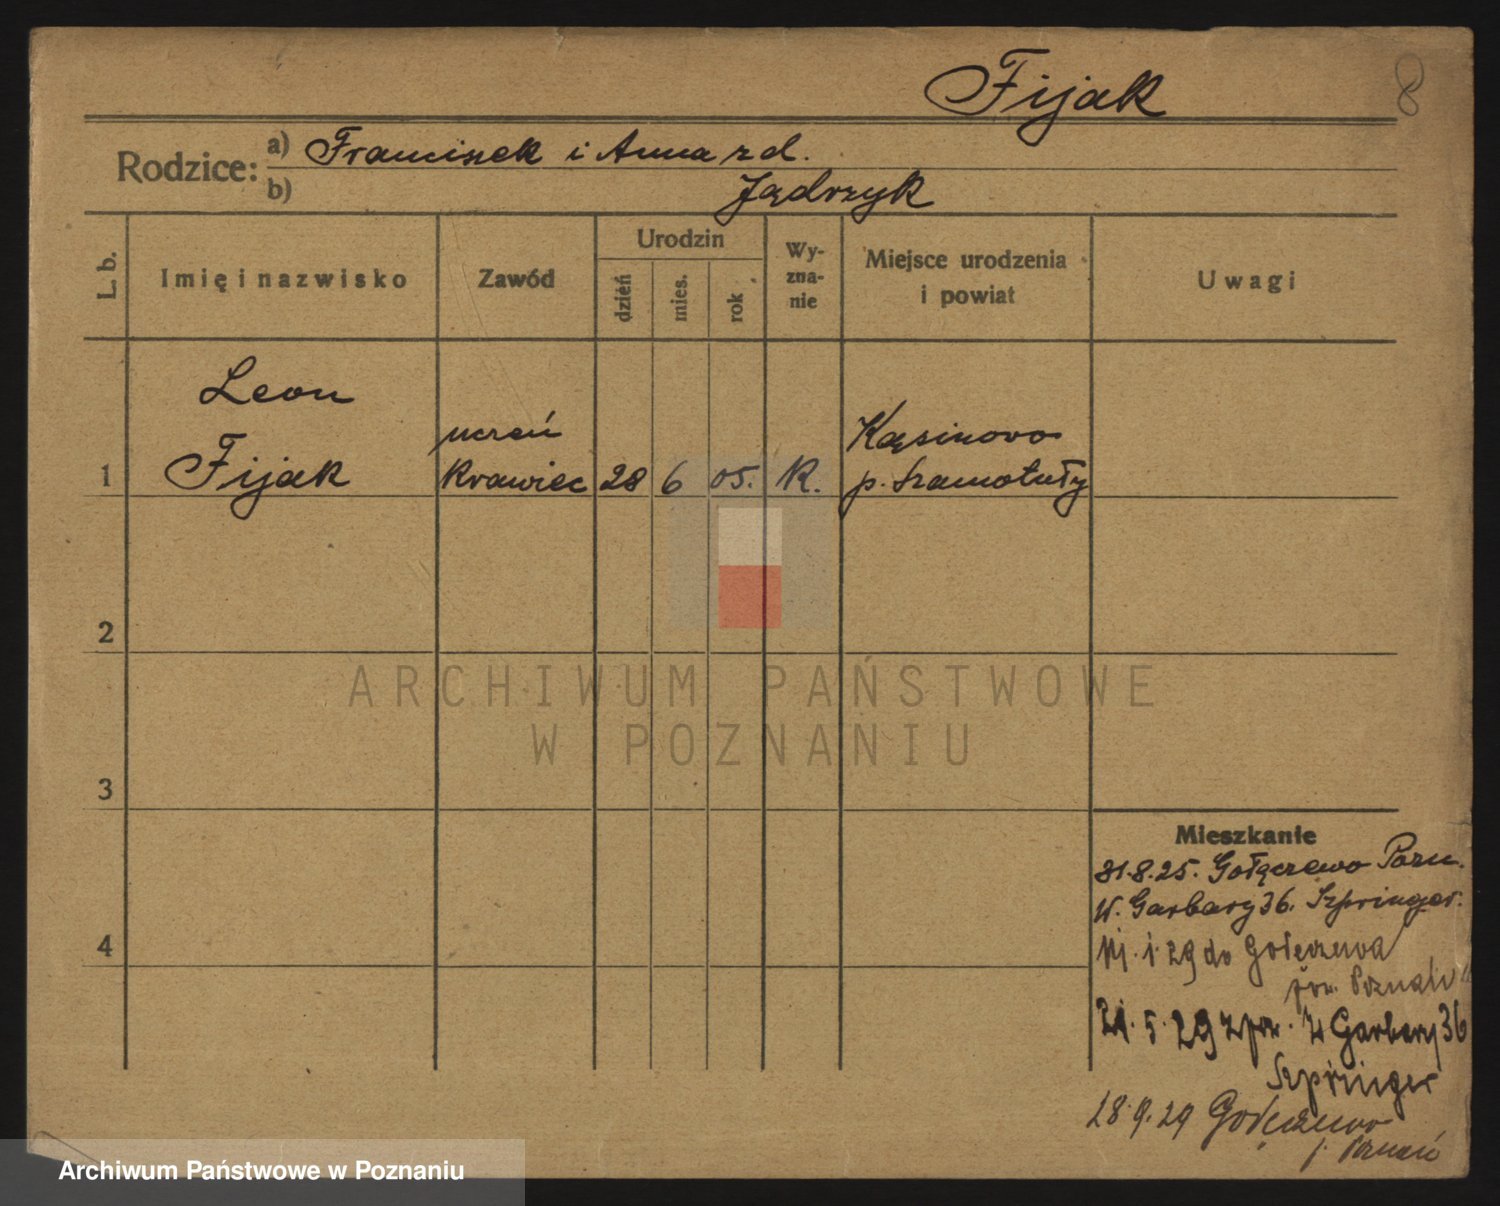 Fijak
8
Rodzice: a) Franciszek i Anna z d.
b) Jądrzyk
L. b.
Imię i nazwisko
Zawód
Urodzin
dzień
mies.
rok
Wy-
zna-
nie
Miejsce urodzenia
i powiat
Uwagi
Leon
uczeń
Kąsinowo
1 Fijak krawiec 28 6 05. K. p. Szamotuły
2
ARCHIWUM PAŃSTWOWE
W POZNANIU
3
Mieszkanie
31.8.25. Gołęczewo Pozn.
W. Garbary 36. Szpringer.
1.29 do Gołęczewa
pow. Poznań
21.5.29 z W Garbary 36
Szpringer
28.9.29 Gołęczewo
4
p. Poznań
Archiwum Państwowe w Poznaniu